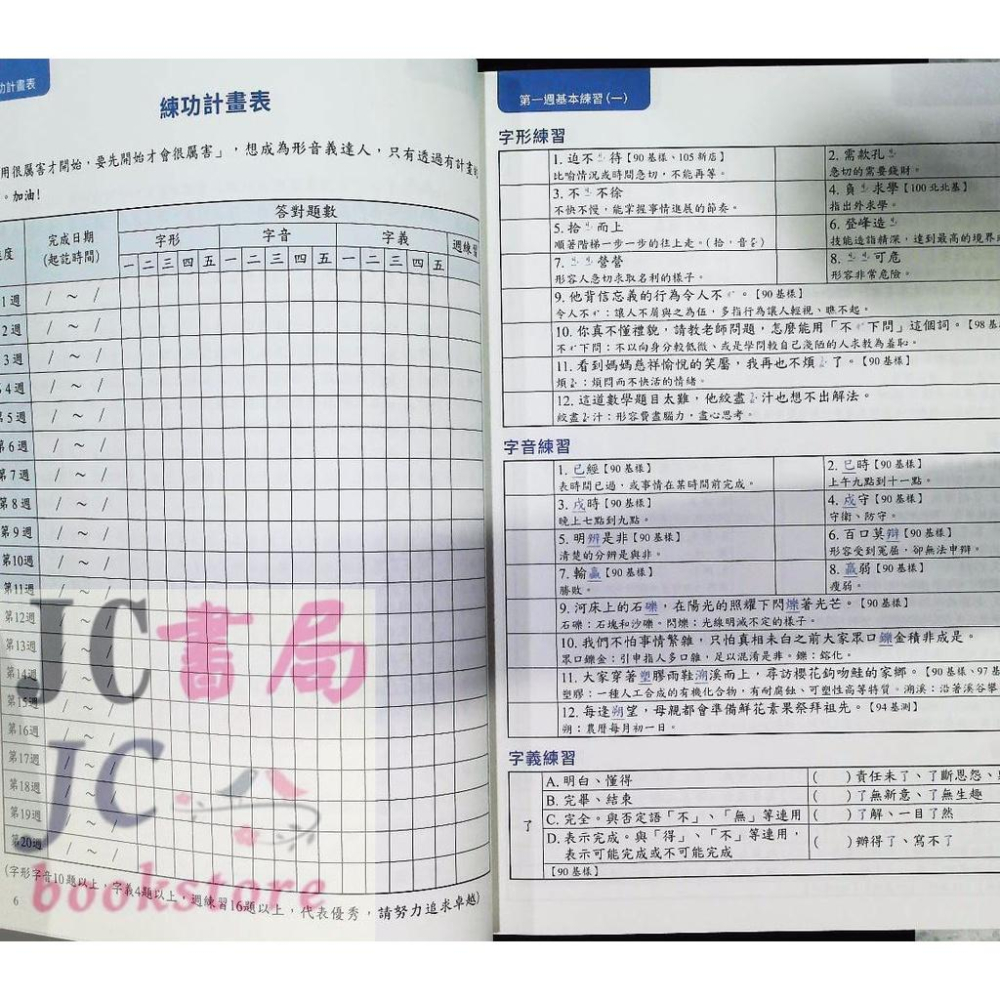 功計畫表
練功計畫表
用很厲害才開始，要先開始才會很厲害」，想成為形音義達人，只有透過有計畫的
。加油！
答對題數
度
完成日期
(起訖時間)
字形
字音
字義
週練習
一 二 三 四 五 一 二 三 四 五 一 二 三 四 五
1週 / ～ /
2週 / ～ /
3週 / ～ /
4週 / ～ /
第5週 / ～ /
第6週 / ～ /
第7週 / ～ /
第8週 / ～ /
第9週 / ～ /
第10週 / ～ /
第11週 / ～ /
第12週 / ～ /
第13週 / ～ /
第14週 / ～ /
第15週 / ～ /
第16週 / ～ /
第17週 / ～ /
第18週 / ～ /
第19週 / ～ /
第20週 / ～ /
(字形字音10題以上，字義4題以上，週練習16題以上，代表優秀，請努力追求卓越)
6
JC書局
JC
bookstore
第一週基本練習(一)
字形練習
1. 迫不 待【90 基樣、105 新店】
比喻情況或時間急切，不能再等。
2. 需款孔
急切的需要錢財。
3. 不 不徐
不快不慢，能掌握事情進展的節奏。
4. 負 求學【100 北北基】
指出外求學。
5. 拾 而上
順著階梯一步一步的往上走。(拾，音
6. 登峰造
技能造詣精深，達到最高的境界
7. 營營
形容人急切求取名利的樣子。
8. 可危
形容非常危險。
9. 他背信忘義的行為令人不 。【90 基樣】
令人不 ：讓人不屑與之為伍，多指行為讓人輕視、瞧不起。
10. 你真不懂禮貌，請教老師問題，怎麼能用「不 下問」這個詞。【98 基
不 下問：不以向身分較低微、或是學問較自己淺陋的人求教為羞恥。
11. 看到媽媽慈祥愉悅的笑靨，我再也不煩 了。【90 基樣】
煩 ：煩悶而不快活的情緒。
12. 這道數學題目太難，他絞盡 汁也想不出解法。
絞盡 汁：形容費盡腦力，盡心思考。
字音練習
1. 已經【90 基樣】
表時間已過，或事情在某時間前完成。
2. 巳時【90 基樣】
上午九點到十一點。
3. 戌時【90 基樣】
晚上七點到九點。
4. 戍守【90 基樣】
守衛、防守。
5. 明辨是非【90 基樣】
清楚的分辨是與非。
6. 百口莫辯【90 基樣】
形容受到冤屈，卻無法申辯。
7. 輸贏【90 基樣】
勝敗。
8. 羸弱【90 基樣】
瘦弱。
9. 河床上的石礫，在陽光的照耀下閃爍著光芒。【90 基樣】
石礫：石塊和沙礫。閃爍：光線明滅不定的樣子。
10. 我們不怕事情繁雜，只怕真相未白之前大家眾口鑠金積非成是。
眾口鑠金：引申指人多口雜，足以混淆是非。鑠：鎔化。
11. 大家穿著塑膠雨鞋溯溪而上，尋訪櫻花鉤吻鮭的家鄉。【90 基樣、97 基
塑膠：一種人工合成的有機化合物，有耐腐蝕、可塑性高等特質。溯溪：沿著溪谷攀
12. 每逢朔望，母親都會準備鮮花素果祭拜祖先。【94 基測】
朔：農曆每月初一日。
字義練習
了
A. 明白、懂得
B. 完畢、結束
C. 完全。與否定語「不」、「無」等連用
D. 表示完成。與「得」、「不」等連用，
表示可能完成或不可能完成
( )責任未了、了斷恩怨、
( )了無新意、了無生趣
( )了解、一目了然
( )辦得了、寫不了
【90 基樣】